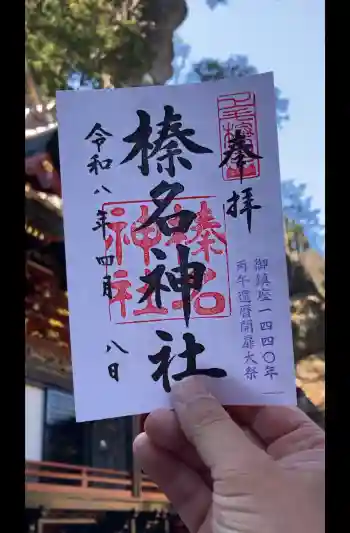 奉拝
榛名神社
榛名
神社
令和八年四月八日
御鎮座一四四〇年
丙午還暦開扉大祭